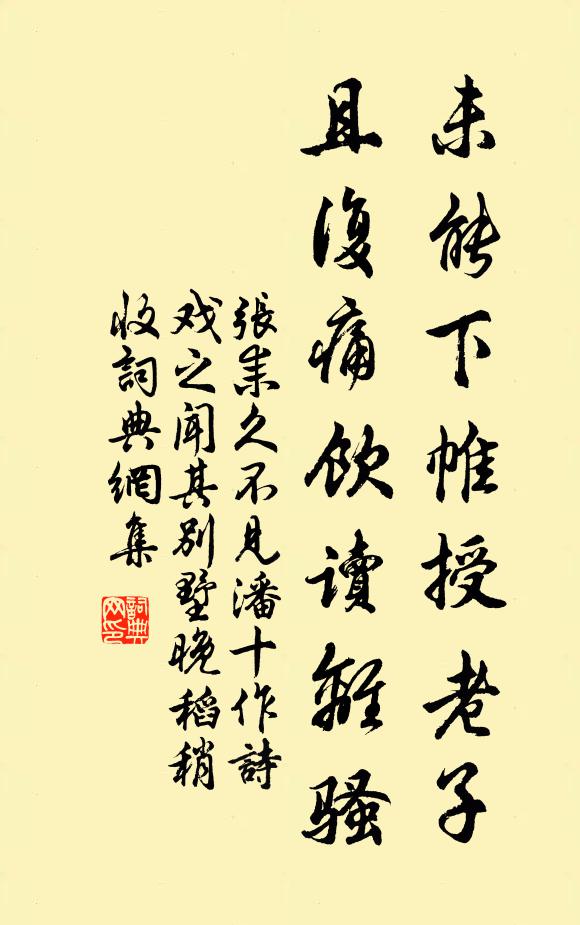 未能下帷授老子
且復痛飲讀離騷
張耒久不見潘十作詩
戏之闻其别墅晚稻稍
收詞典網集
詞典网印